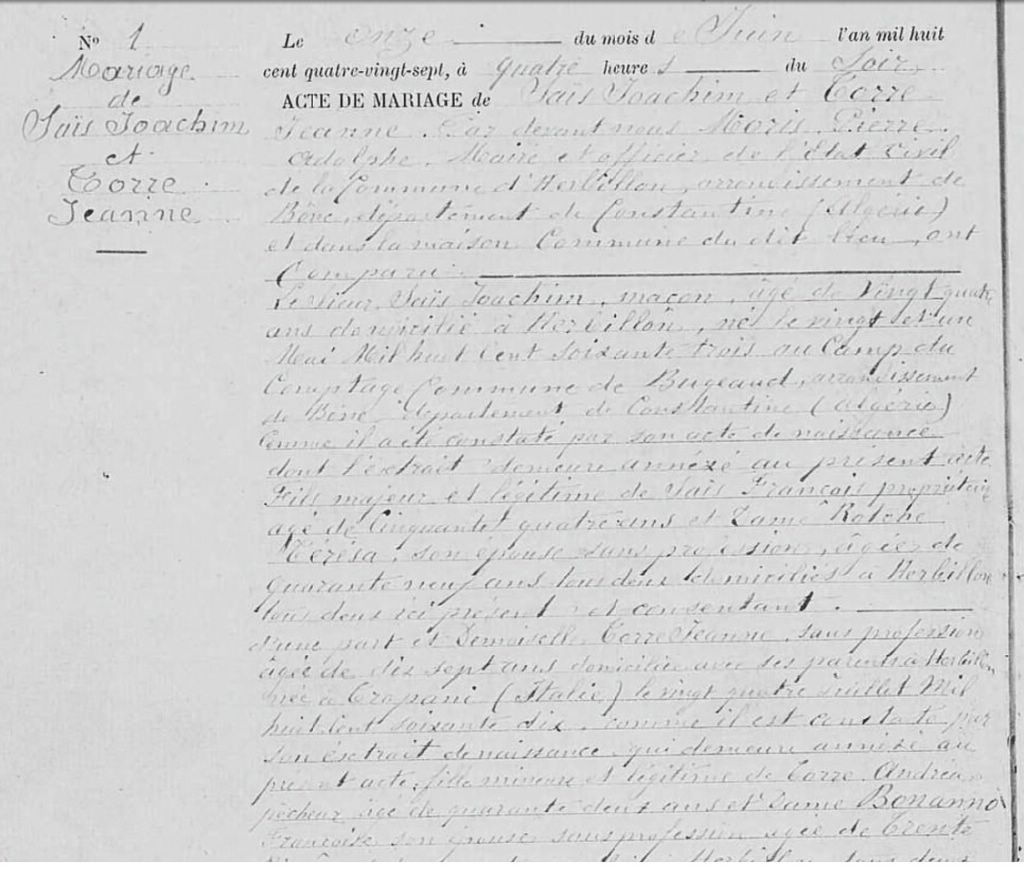 N° 1
Mariage
de
Saïs Joachim
et
Torre
Jeanne
Le onze du mois de Juin l'an mil huit
cent quatre-vingt-sept, à quatre heures du Soir
ACTE DE MARIAGE de Saïs Joachim et Torre
Jeanne. Par devant nous Moris Pierre
Adolphe, Maire et officier de l'Etat Civil
de la Commune d'Herbillon, arrondissement de
Bône, département de Constantine (Algérie)
et dans la maison Commune du dit lieu, ont
Comparu
Le Sieur Saïs Joachim, maçon, âgé de Vingt quatre
ans domicilié à Herbillon, né le vingt et un
Mai Mil huit Cent soixante trois au Camp du
Comptage Commune de Bugeaud, arrondissement
de Bône, département de Constantine (Algérie)
Comme il a été constaté par son acte de naissance
dont l'extrait demeure annexé au présent acte
Fils majeur et légitime de Saïs François propriétaire
agé de Cinquante quatre ans et Dame Rotche
Térésa, son épouse sans profession, âgée de
quarante neuf ans tous deux domiciliés à Herbillon
tous deux ici présent et consentant.
d'une part et Demoiselle Torre Jeanne, sans profession
âgée de dix sept ans domiciliée avec ses parents à Herbillon
née à Trapani (Italie) le vingt quatre Juillet Mil
huit Cent soixante dix, comme il est constaté par
son extrait de naissance qui demeure annexé au
présent acte, fille mineure et légitime de Torre Andréa
pêcheur âgé de quarante deux ans et Dame Bonanno
Françoise son épouse sans profession agée de Trente
Herbillon tous deux